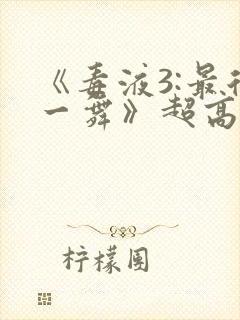 《毒液3:最
一舞》超高
柠檬围